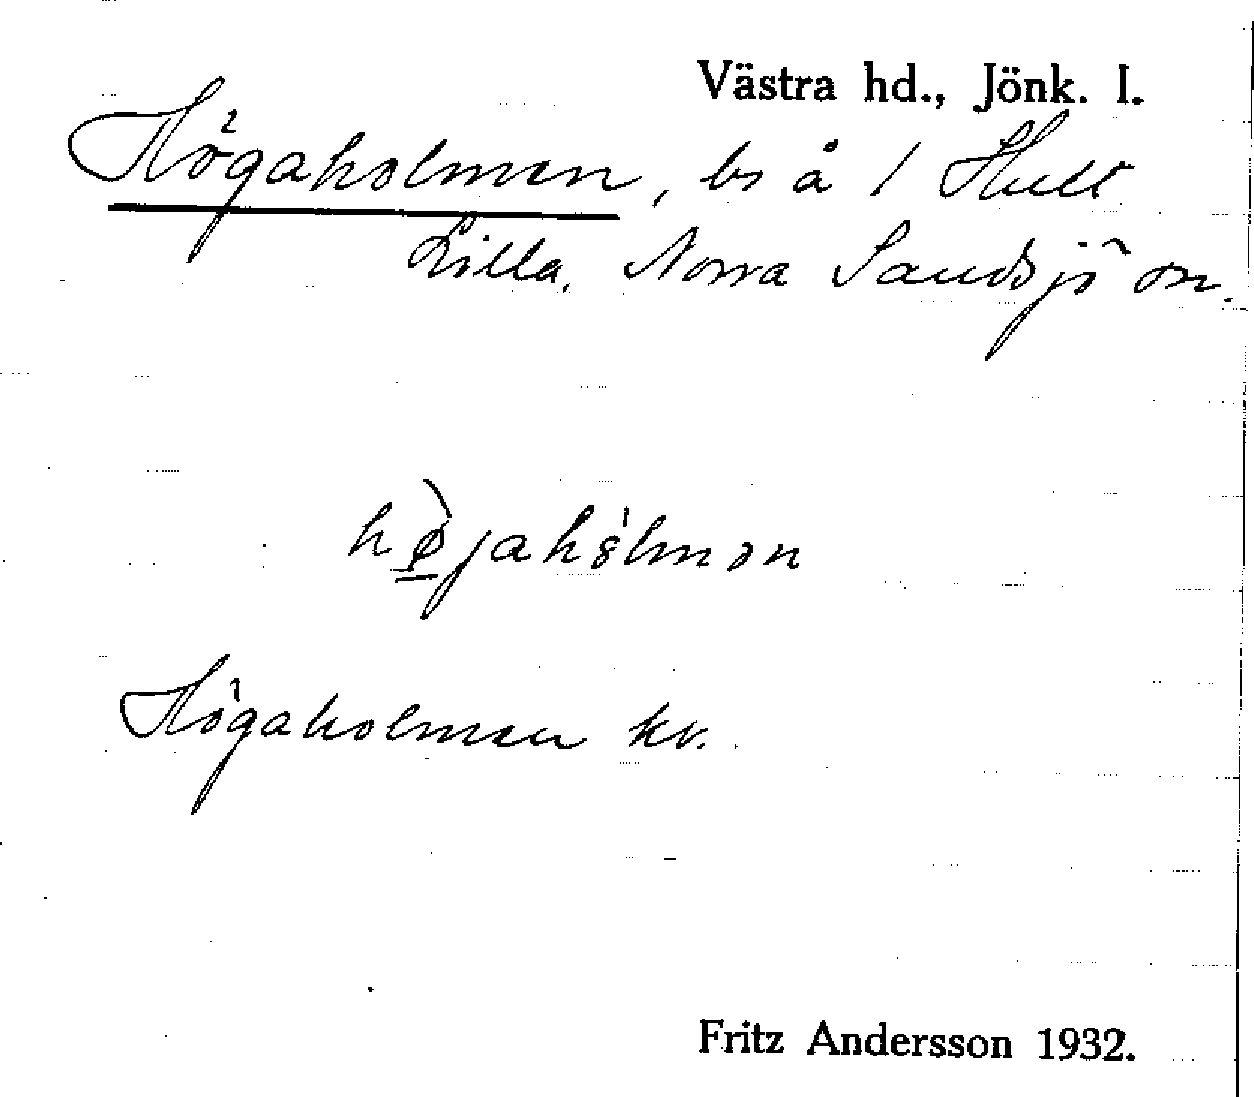 Västra hd., Jönk. l.
Högaholmen, bs å 1 Hult
Lilla, Norra Sandsjö sn.
hø̀jahólmən
Högaholmen kv.
Fritz Andersson 1932.